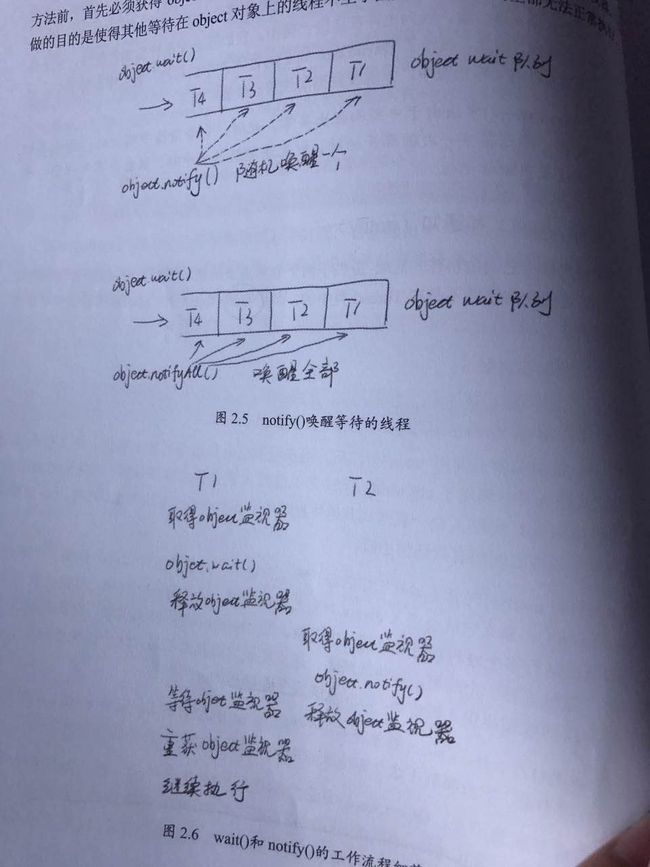 方法前，首先必须获得 obje
做的目的是使得其他等待在 object 对象上的线程不
无法正常执行
object wait()
T4 T3 T2 T1 object wait 队列
object.notify() 随机唤醒一个
object wait()
T4 T3 T2 T1 object wait 队列
object.notifyAll() 唤醒全部
图 2.5 notify()唤醒等待的线程
T1 T2
取得object监视器
objet.wait()
释放object监视器
取得object监视器
object.notify()
等待objet监视器 释放object监视器
重获object监视器
继续执行
图 2.6 wait()和 notify()的工作流程细节